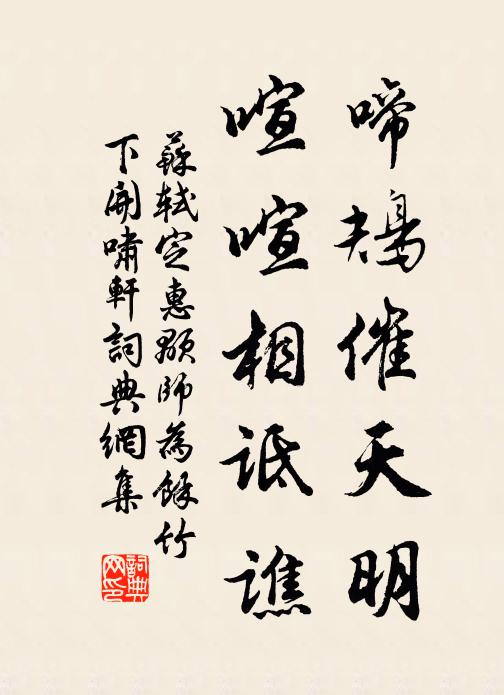 啼鴂催天明
喧喧相詆譙
蘇軾定惠顒師為餘竹
下開嘯軒詞典網集
詞典
网印